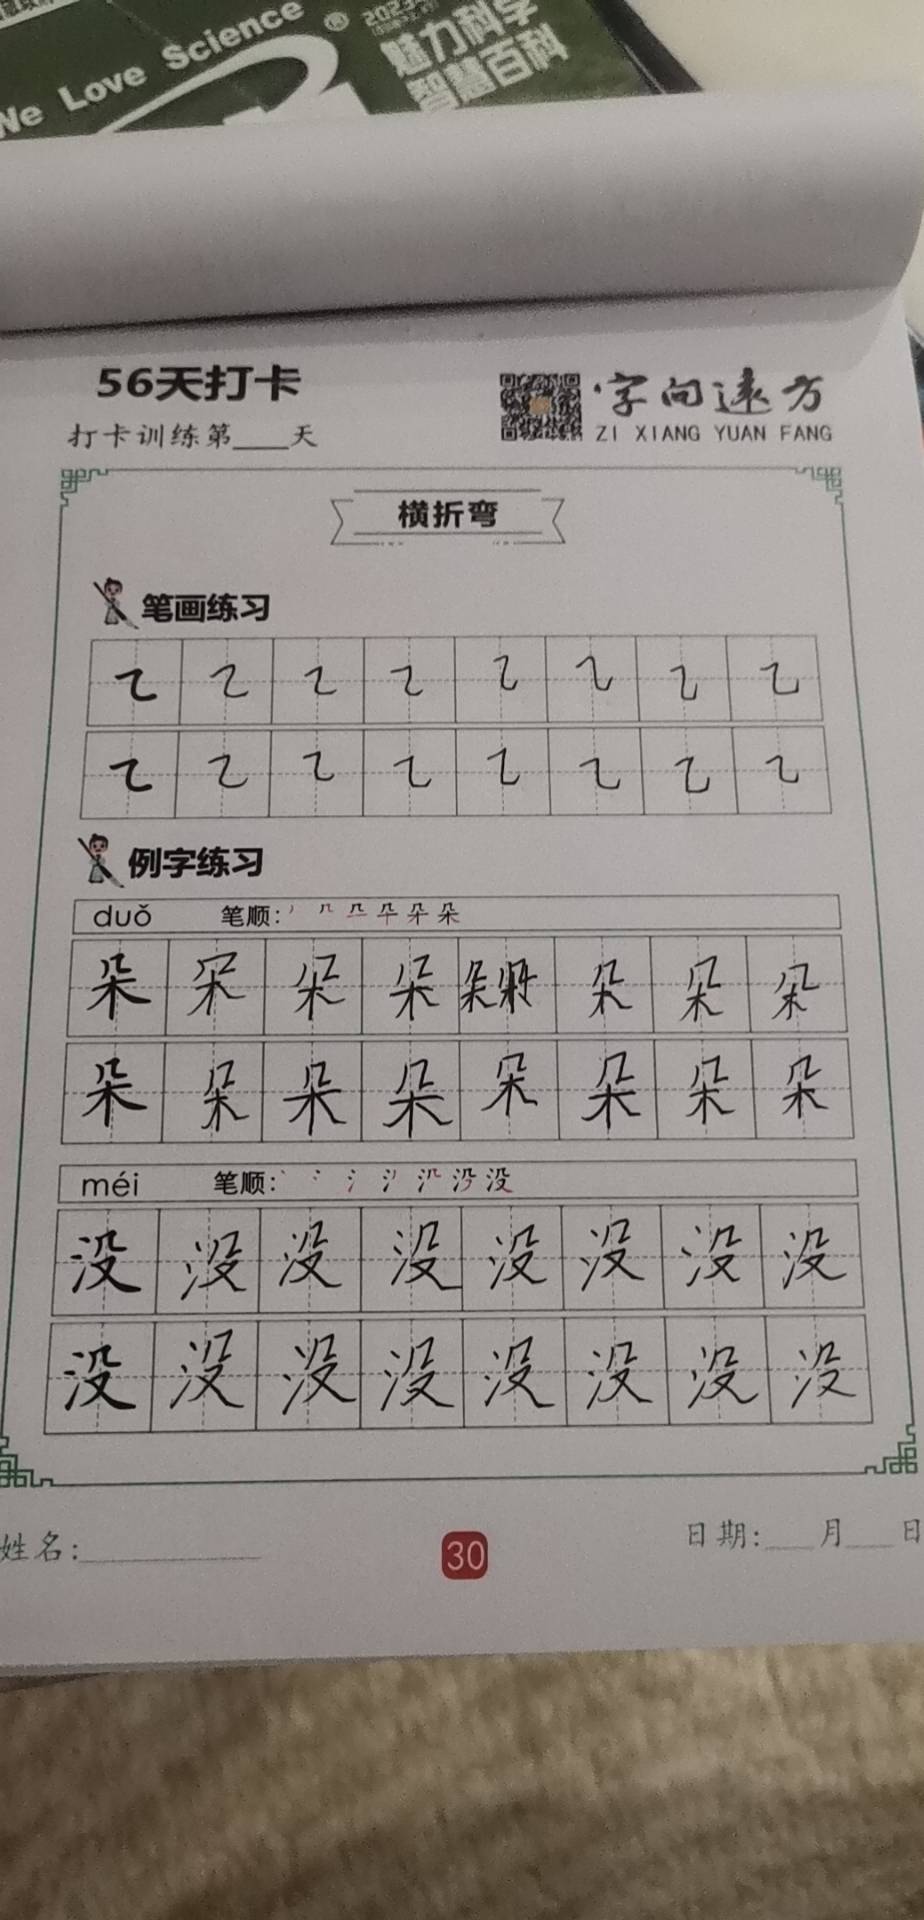 We Love Science ®
魅力科学
智慧百科
56天打卡
打卡训练第____天
字向远方
ZI XIANG YUAN FANG
横折弯
笔画练习
例字练习
duǒ 笔顺:
朵 朵 朵 朵 朵 朵 朵 朵
朵 朵 朵 朵 朵 朵 朵 朵
méi 笔顺: 没
没 没 没 没 没 没 没 没
没 没 没 没 没 没 没 没
姓名:__________
30
日期:___月___日